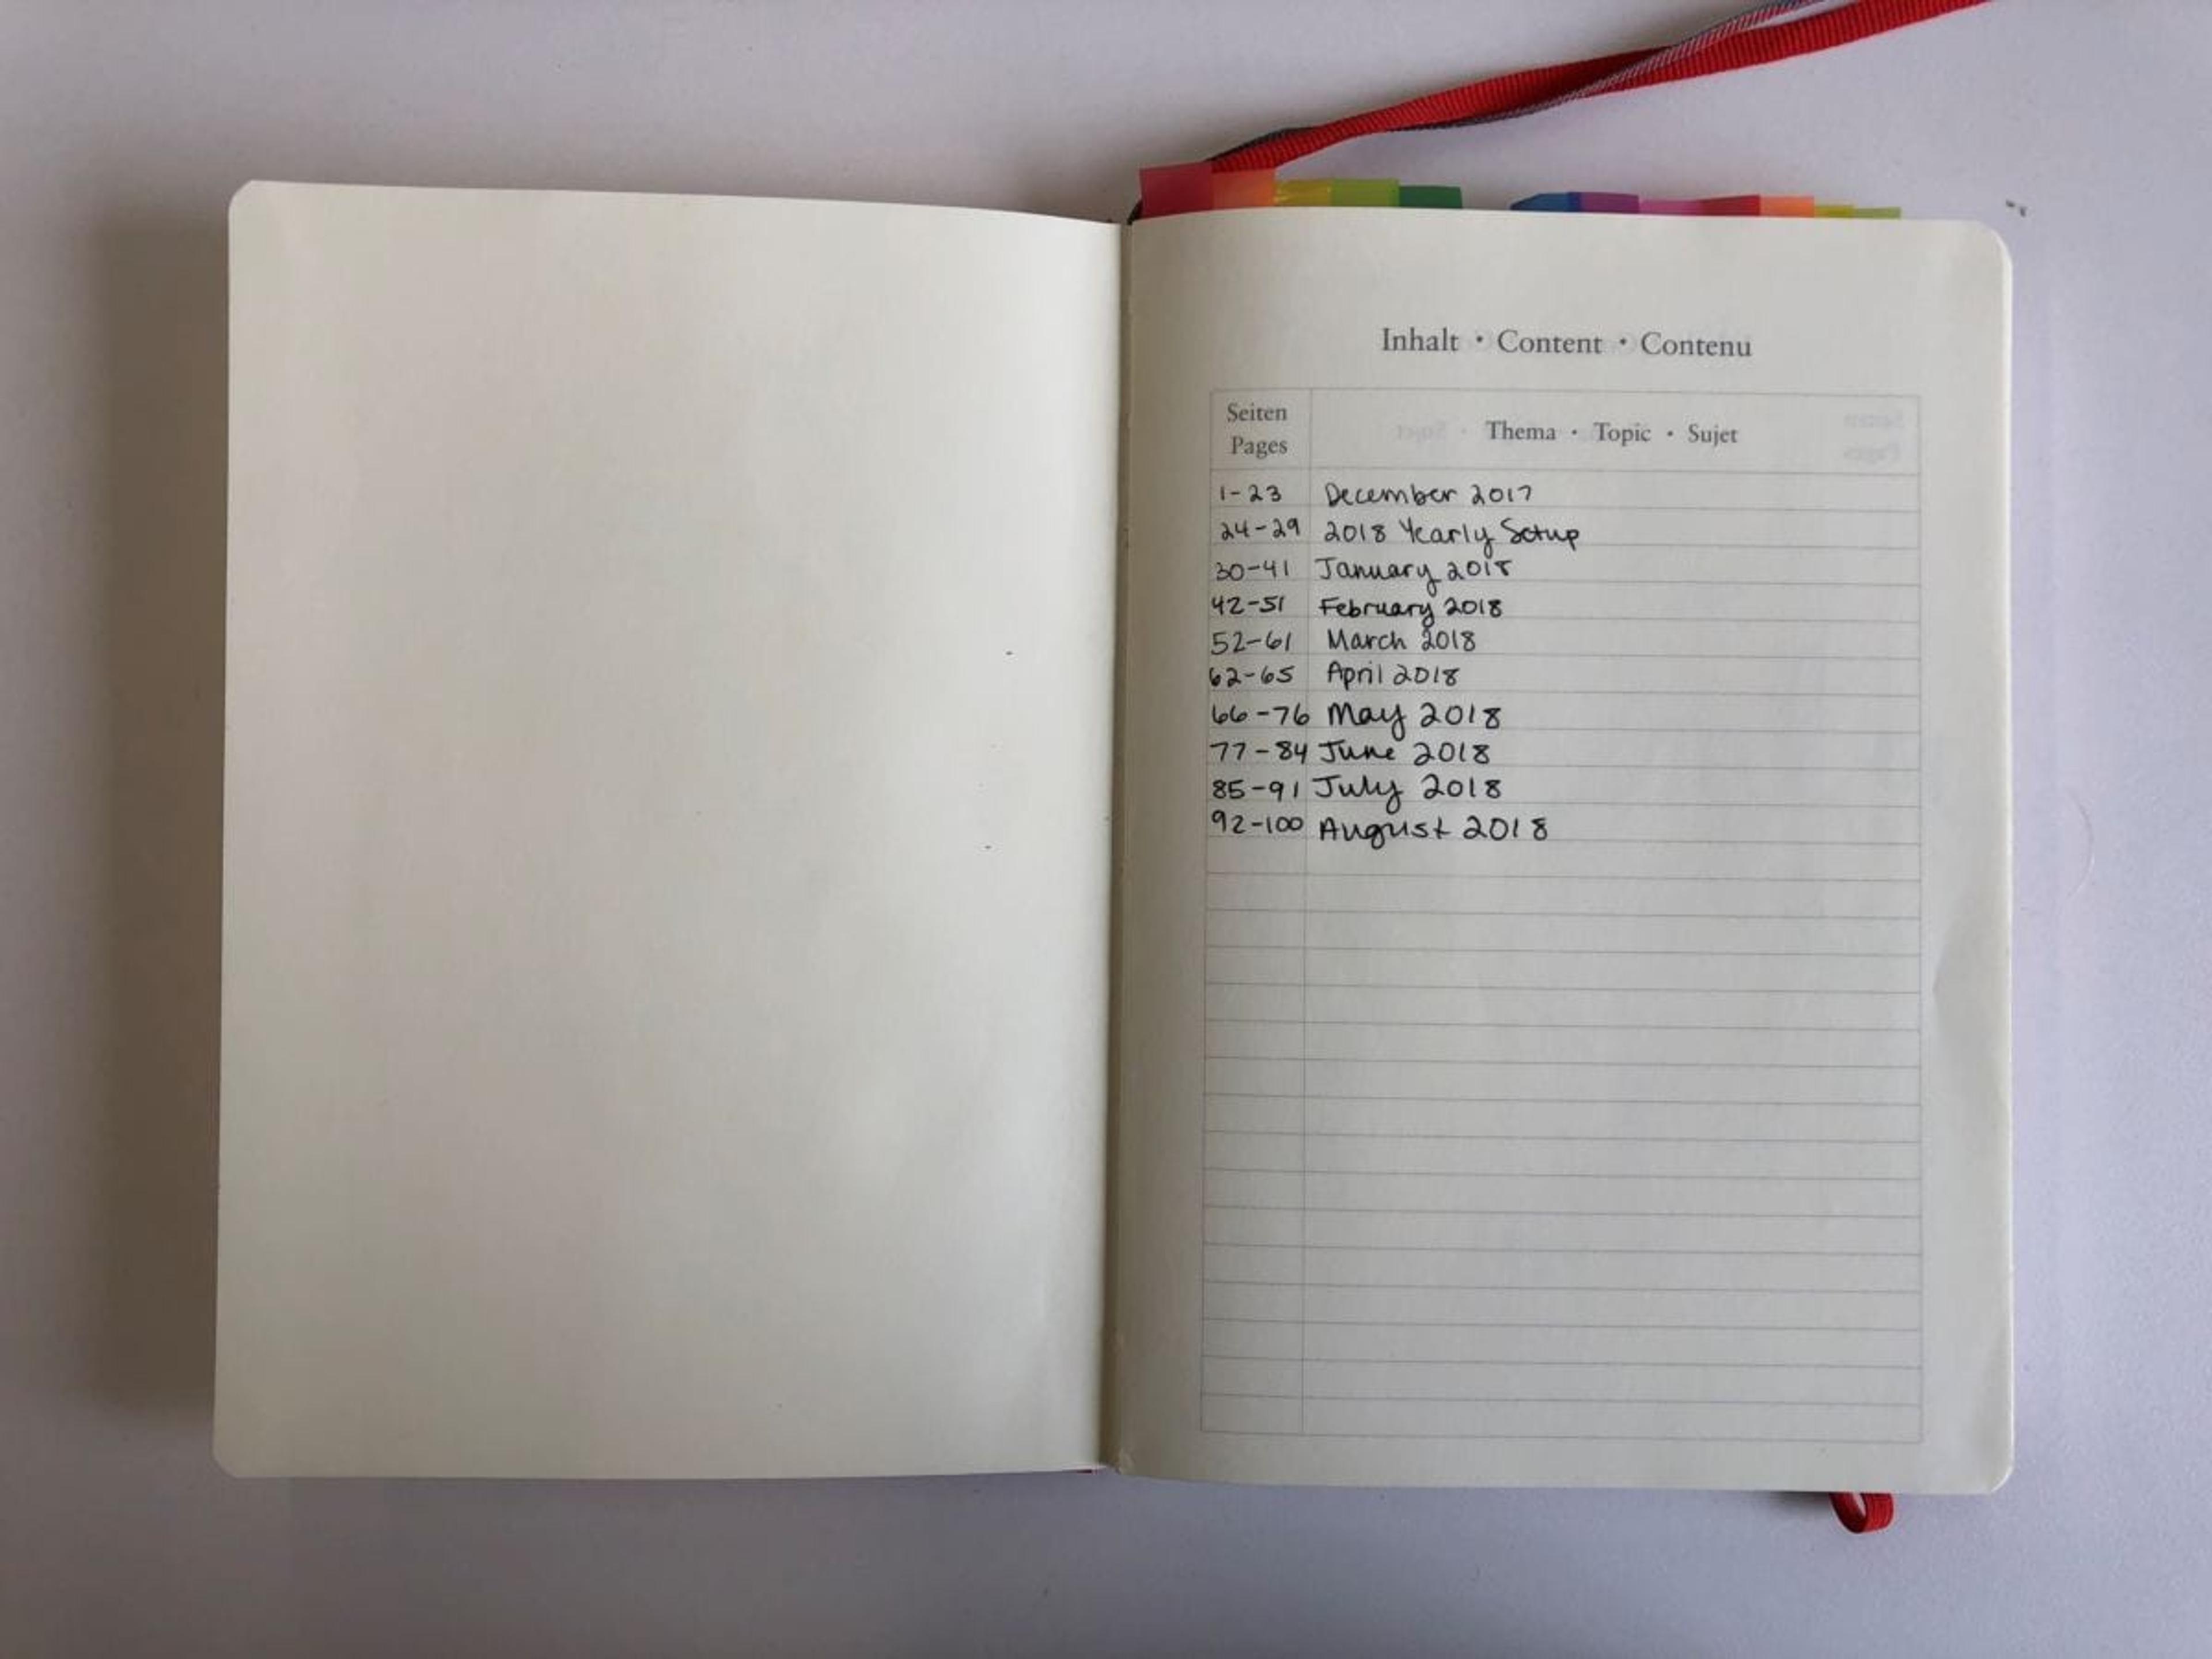 Inhalt · Content · Contenu
Seiten
Pages
Thema · Topic · Sujet
1-23 December 2017
24-29 2018 Yearly Setup
30-41 January 2018
42-51 February 2018
52-61 March 2018
62-65 April 2018
66-76 May 2018
77-84 June 2018
85-91 July 2018
92-100 August 2018